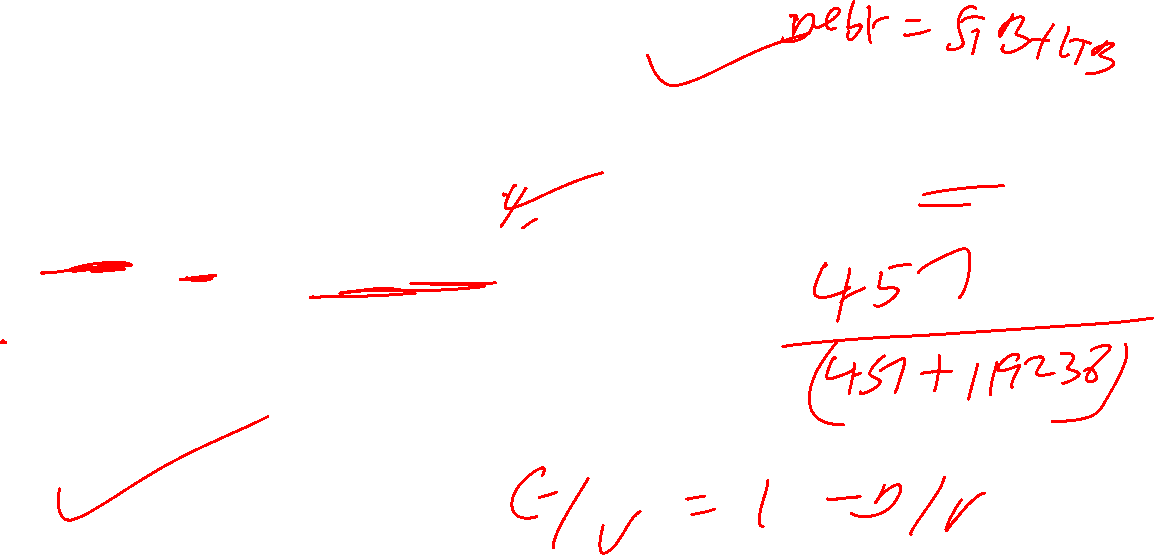 Debt = STB+LTB
=
457
(457+119238)
E/V = 1 - D/V